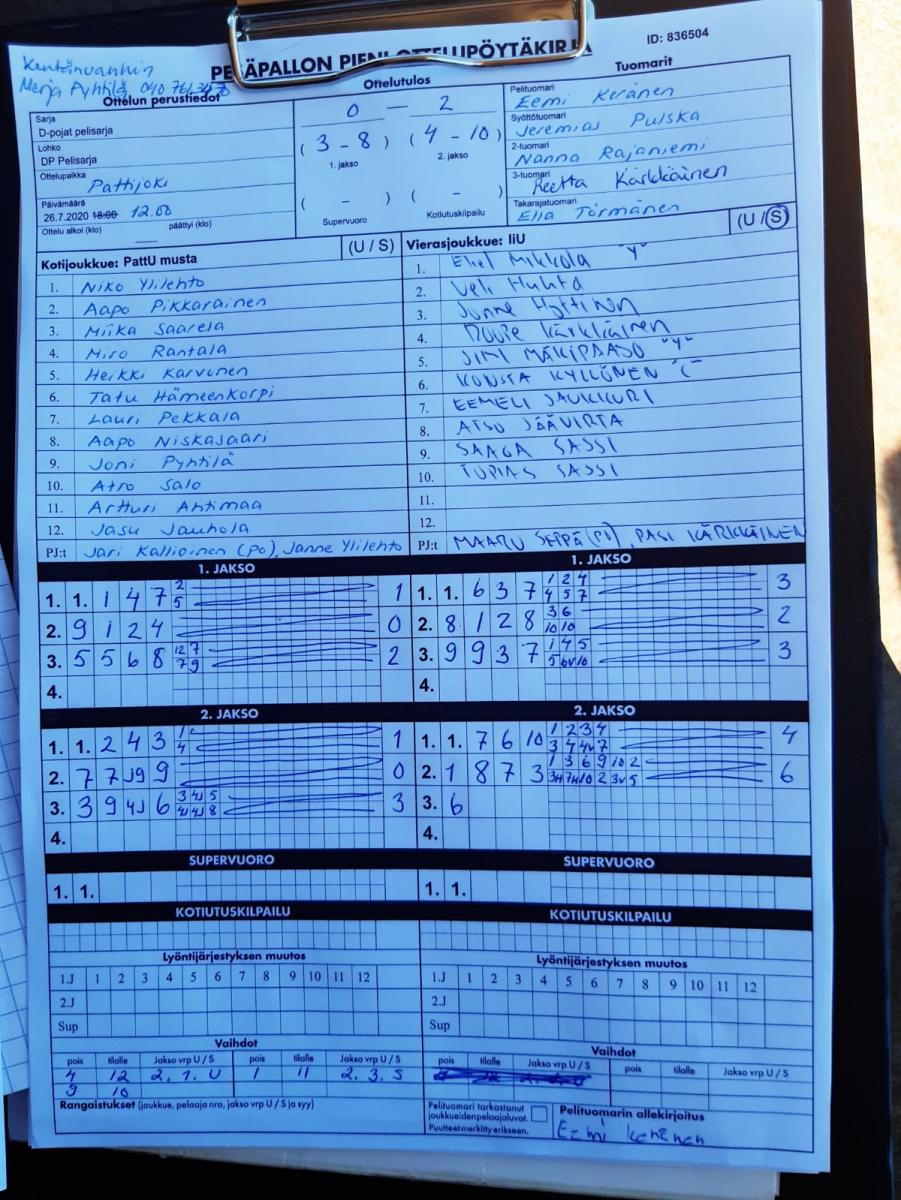 Kentänvanhin
Merja Pyhtilä,
PESÄPALLON PIENI OTTELUPÖYTÄKIRJA
ID: 836504
Ottelun perustiedot
Ottelutulos
Tuomarit
Sarja
D-pojat pelisarja
Lohko
DP Pelisarja
Ottelupaikka
Pattijoki
Päivämäärä
26.7.2020 18:00 12.00
Ottelu alkoi (klo) päättyi (klo)
0 - 2
(3 - 8) (4 - 10)
1. jakso 2. jakso
( - ) ( - )
Supervuoro Kotiutuskilpailu
Pelituomari
Eemi Keränen
Syöttötuomari
Jeremias Pulska
2-tuomari
Nanna Rajaniemi
3-tuomari
Reetta Kärkkäinen
Takarajatuomari
Ella Törmänen
Kotijoukkue: PattU musta (U / S)
1. Niko Ylilehto
2. Aapo Pikkarainen
3. Miika Saarela
4. Miro Rantala
5. Heikki Karvonen
6. Tatu Hämeenkorpi
7. Lauri Pekkala
8. Aapo Niskasaari
9. Joni Pyhtilä
10. Atro Salo
11. Artturi Antimaa
12. Jasu Jauhola
PJ:t Jari Kallioinen (PO), Janne Ylilehto
Vierasjoukkue: IiU (U / S)
1. Mikkola "Y"
2. Veli Huhta
3. Hyttinen
4. Kärkkäinen
5. JIMI MÄKIPAASO "Y"
6. KONSTA KYLLÖNEN "C"
7. EEMELI JAUKKURI
8. ATSO JÄÄVIRTA
9. SAAGA SASSI
10. TOPIAS SASSI
11.
12.
PJ:t MAARU SEPPÄ (PJ), PASI KÄRKKÄINEN
1. JAKSO
1. 1. 1 4 7 2 5 1
2. 9 1 2 4 0
3. 5 5 6 8 12 7 7 9 2
4.
1. JAKSO
1. 1. 6 3 7 1 2 4 4 5 7 3
2. 8 1 2 8 3 6 10 10 2
3. 9 9 3 7 1 4 5 5 6V 10 3
4.
2. JAKSO
1. 1. 2 4 3 1 4 1
2. 7 7 J9 9 0
3. 3 9 4J 6 3 4J 5 4J 8 3
4.
2. JAKSO
1. 1. 7 6 10 1 2 3 4 3 4 4V 7 4
2. 1 8 7 3 1 3 6 9 10 2 10 2 3V 5 6
3. 6
4.
SUPERVUORO
1. 1.
SUPERVUORO
1. 1.
KOTIUTUSKILPAILU
KOTIUTUSKILPAILU
Lyöntijärjestyksen muutos
1.J 1 2 3 4 5 6 7 8 9 10 11 12
2.J
Sup
Lyöntijärjestyksen muutos
1.J 1 2 3 4 5 6 7 8 9 10 11 12
2.J
Sup
Vaihdot
pois tilalle Jakso vrp U / S pois tilalle Jakso vrp U / S
4 12 2. 1. U 1 11 2. 3. S
9 10
Vaihdot
pois tilalle Jakso vrp U / S pois tilalle Jakso vrp U / S
Rangaistukset (joukkue, pelaaja nro, jakso vrp U / S ja syy)
Pelituomari tarkastanut
joukkueidenpelaajaluvat.
Puutteet merkitty erikseen.
Pelituomarin allekirjoitus
Eemi Keränen